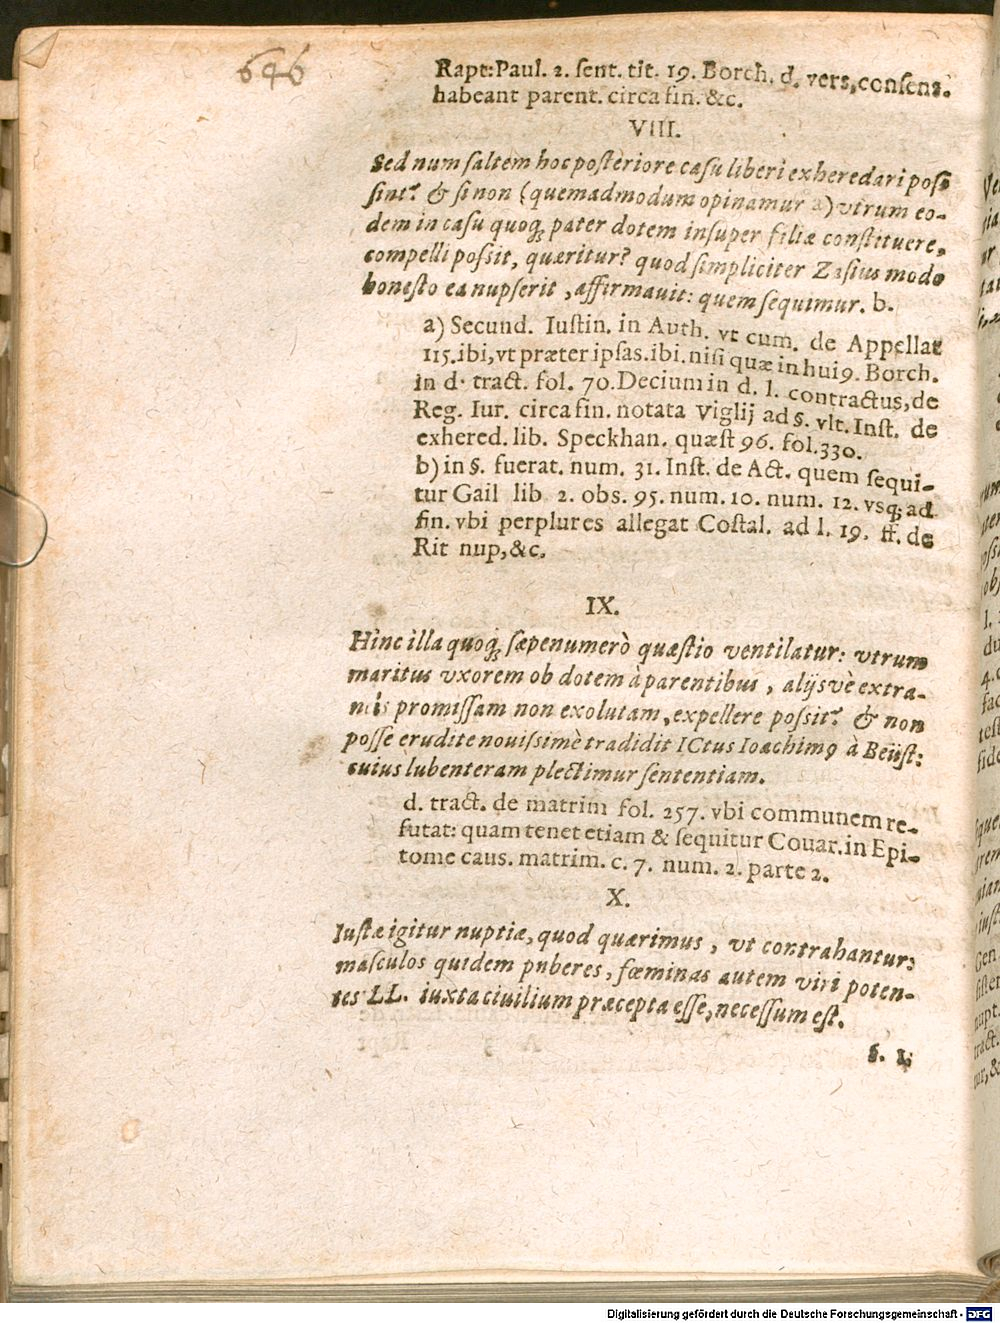 646
Rapt: Paul. 2. sent. tit. 19. Borch. d. vers, consens.
habeant parent. circa fin. &c.
VIII.
Sed num saltem hoc posteriore casu liberi exheredari pos
sint? & si non (quemadmodum opinamur a) vtrum eo-
dem in casu quoq; pater dotem insuper filiæ constituere,
compelli possit, quæritur? quod simpliciter Zasius modo
honesto ea nupserit, affirmauit: quem sequimur. b.
a) Secund. Iustin. in Auth. vt cum. de Appellat
115. ibi, vt præter ipsas. ibi. nisi quæ in hui9. Borch.
in d. tract. fol. 70. Decium in d. l. contractus, de
Reg. Iur. circa fin. notata Viglij ad §. vlt. Inst. de
exhered. lib. Speckhan. quæst 96. fol. 330.
b) in §. fuerat. num. 31. Inst. de Act. quem sequi-
tur Gail lib 2. obs. 95. num. 10. num. 12. vsq; ad
fin. vbi perplures allegat Costal. ad l. 19. ff. de
Rit nup, &c.
IX.
Hinc illa quoq; sæpenumerò quæstio ventilatur: vtrum
maritus vxorem ob dotem à parentibus, alijsvè extra-
neis promissam non exolutam, expellere possit? & non
posse erudite nouissimè tradidit ICtus Ioachim9 à Beüst:
cuius lubenter amplectimur sententiam.
d. tract. de matrim fol. 257. vbi communem re-
futat: quam tenet etiam & sequitur Couar. in Epi-
tome caus. matrim. c. 7. num. 2. parte 2.
X.
Iustæ igitur nuptiæ, quod quærimus, vt contrahantur:
masculos quidem puberes, fœminas autem viri poten-
tes LL. iuxta ciuilium præcepta esse, necessum est.
§. I.
Digitalisierung gefördert durch die Deutsche Forschungsgemeinschaft - DFG